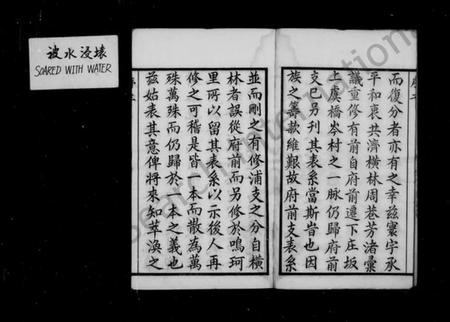 被水浸壞
SOARED WITH WATER
而復分者亦有之幸茲寰宇承
平和衷共濟橫林周巷芳渚彙
議重修有前自府前遷下庄坂
上虞橋岑村之一脉仍歸府前
支已另刊其表系當斯旹也因
族之籌款維艱故府前支表系
並而刪之有修浦支之分自橫
林者誤從府前而另修於鳴珂
里所以留其表系以示後人再
修之可稽是皆一本而散為萬
珠萬珠而仍歸於一本之義也
茲姑表其意俾將來知萃渙之